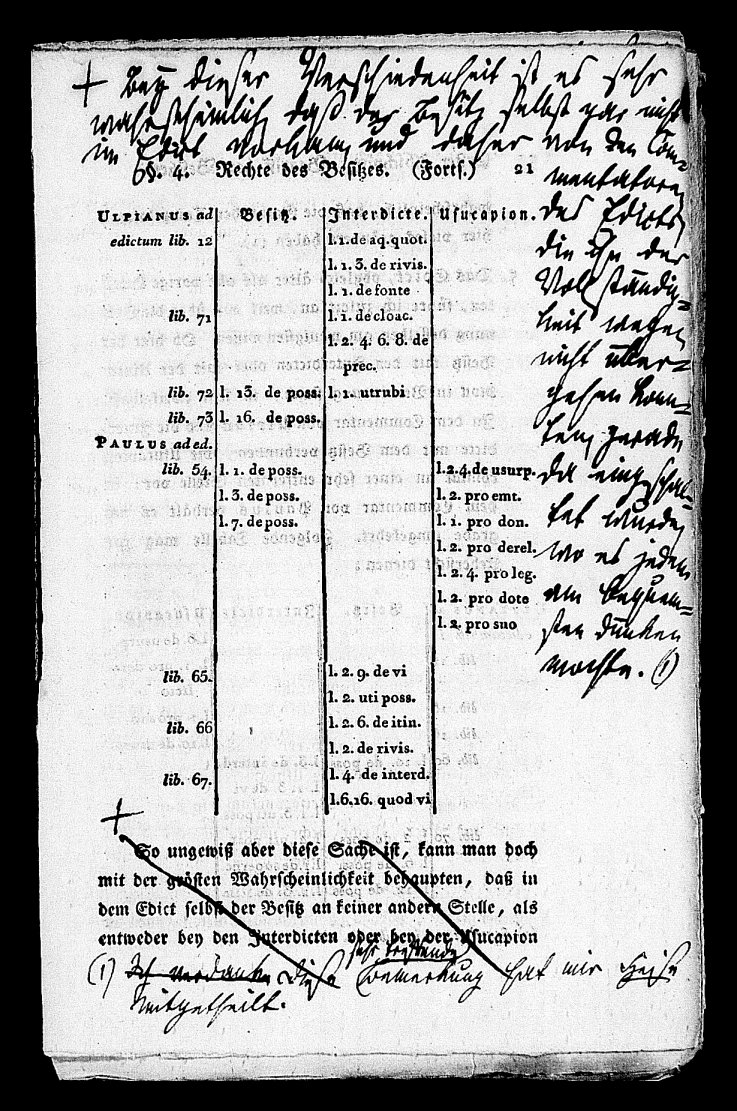 + Bey dieser Verschiedenheit ist es sehr
wahrscheinlich, daß der Besitz selbst gar nicht
im Edict vorkam, und daher von den Com-
mentatoren
des Edicts,
die ihn der
Vollständig-
keit wegen
nicht über-
gehen konn-
ten, gerade
da eingeschal-
tet wurde,
wo es jedem
am bequem-
sten dünken
mochte. (1)
§. 4. Rechte des Besitzes. (Forts.) 21
ULPIANUS ad Besitz. Interdicte. Usucapion.
edictum lib. 12 l. 1. de aq. quot.
l. 1. 3. de rivis.
l. 1. de fonte
lib. 71 l. 1. de cloac.
l. 2. 4. 6. 8. de
prec.
lib. 72 l. 13. de poss. l. 1. utrubi
lib. 73 l. 16. de poss.
PAULUS ad ed.
lib. 54. l. 1. de poss. l. 2. 4. de usurp.
l. 3. de poss. l. 2. pro emt.
l. 7. de poss. l. 1. pro don.
l. 2. pro derel.
l. 2. 4. pro leg.
l. 2. pro dote
l. 2. pro suo
lib. 65. l. 2. 9. de vi
l. 2. uti poss.
lib. 66 l. 2. 6. de itin.
l. 2. de rivis.
lib. 67. l. 4. de interd.
l. 6. 16. quod vi
+
So ungewiß aber diese Sache ist, kann man doch
mit der grösten Wahrscheinlichkeit behaupten, daß in
dem Edict selbst der Besitz an keiner andern Stelle, als
entweder bey den Interdicten oder bey der Usucapion
sehr treffende
(1) Ich verdanke Diese Bemerkung hat mir Heise
mitgetheilt.